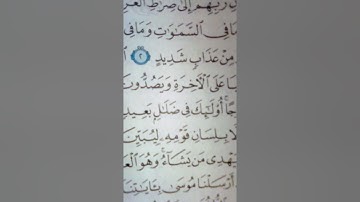 رَبِّهِمْ إِلَىٰ صِرَٰطِ ٱلْعَزِ
مَا فِي ٱلسَّمَٰوَٰتِ وَمَا فِي
مِنْ عَذَابٍ شَدِيدٍ ٢
عَلَى ٱلْأٓخِرَةِ وَيَصُدُّونَ
أُوْلَٰٓئِكَ فِي ضَلَٰلٍۭ بَعِيدٍ
بِلِسَانِ قَوْمِهِۦ لِيُبَيِّنَ
يَهْدِي مَن يَشَآءُ وَهُوَ ٱلْعَ
أَرْسَلْنَا مُوسَىٰ بِـَٔايَٰتِنَآ